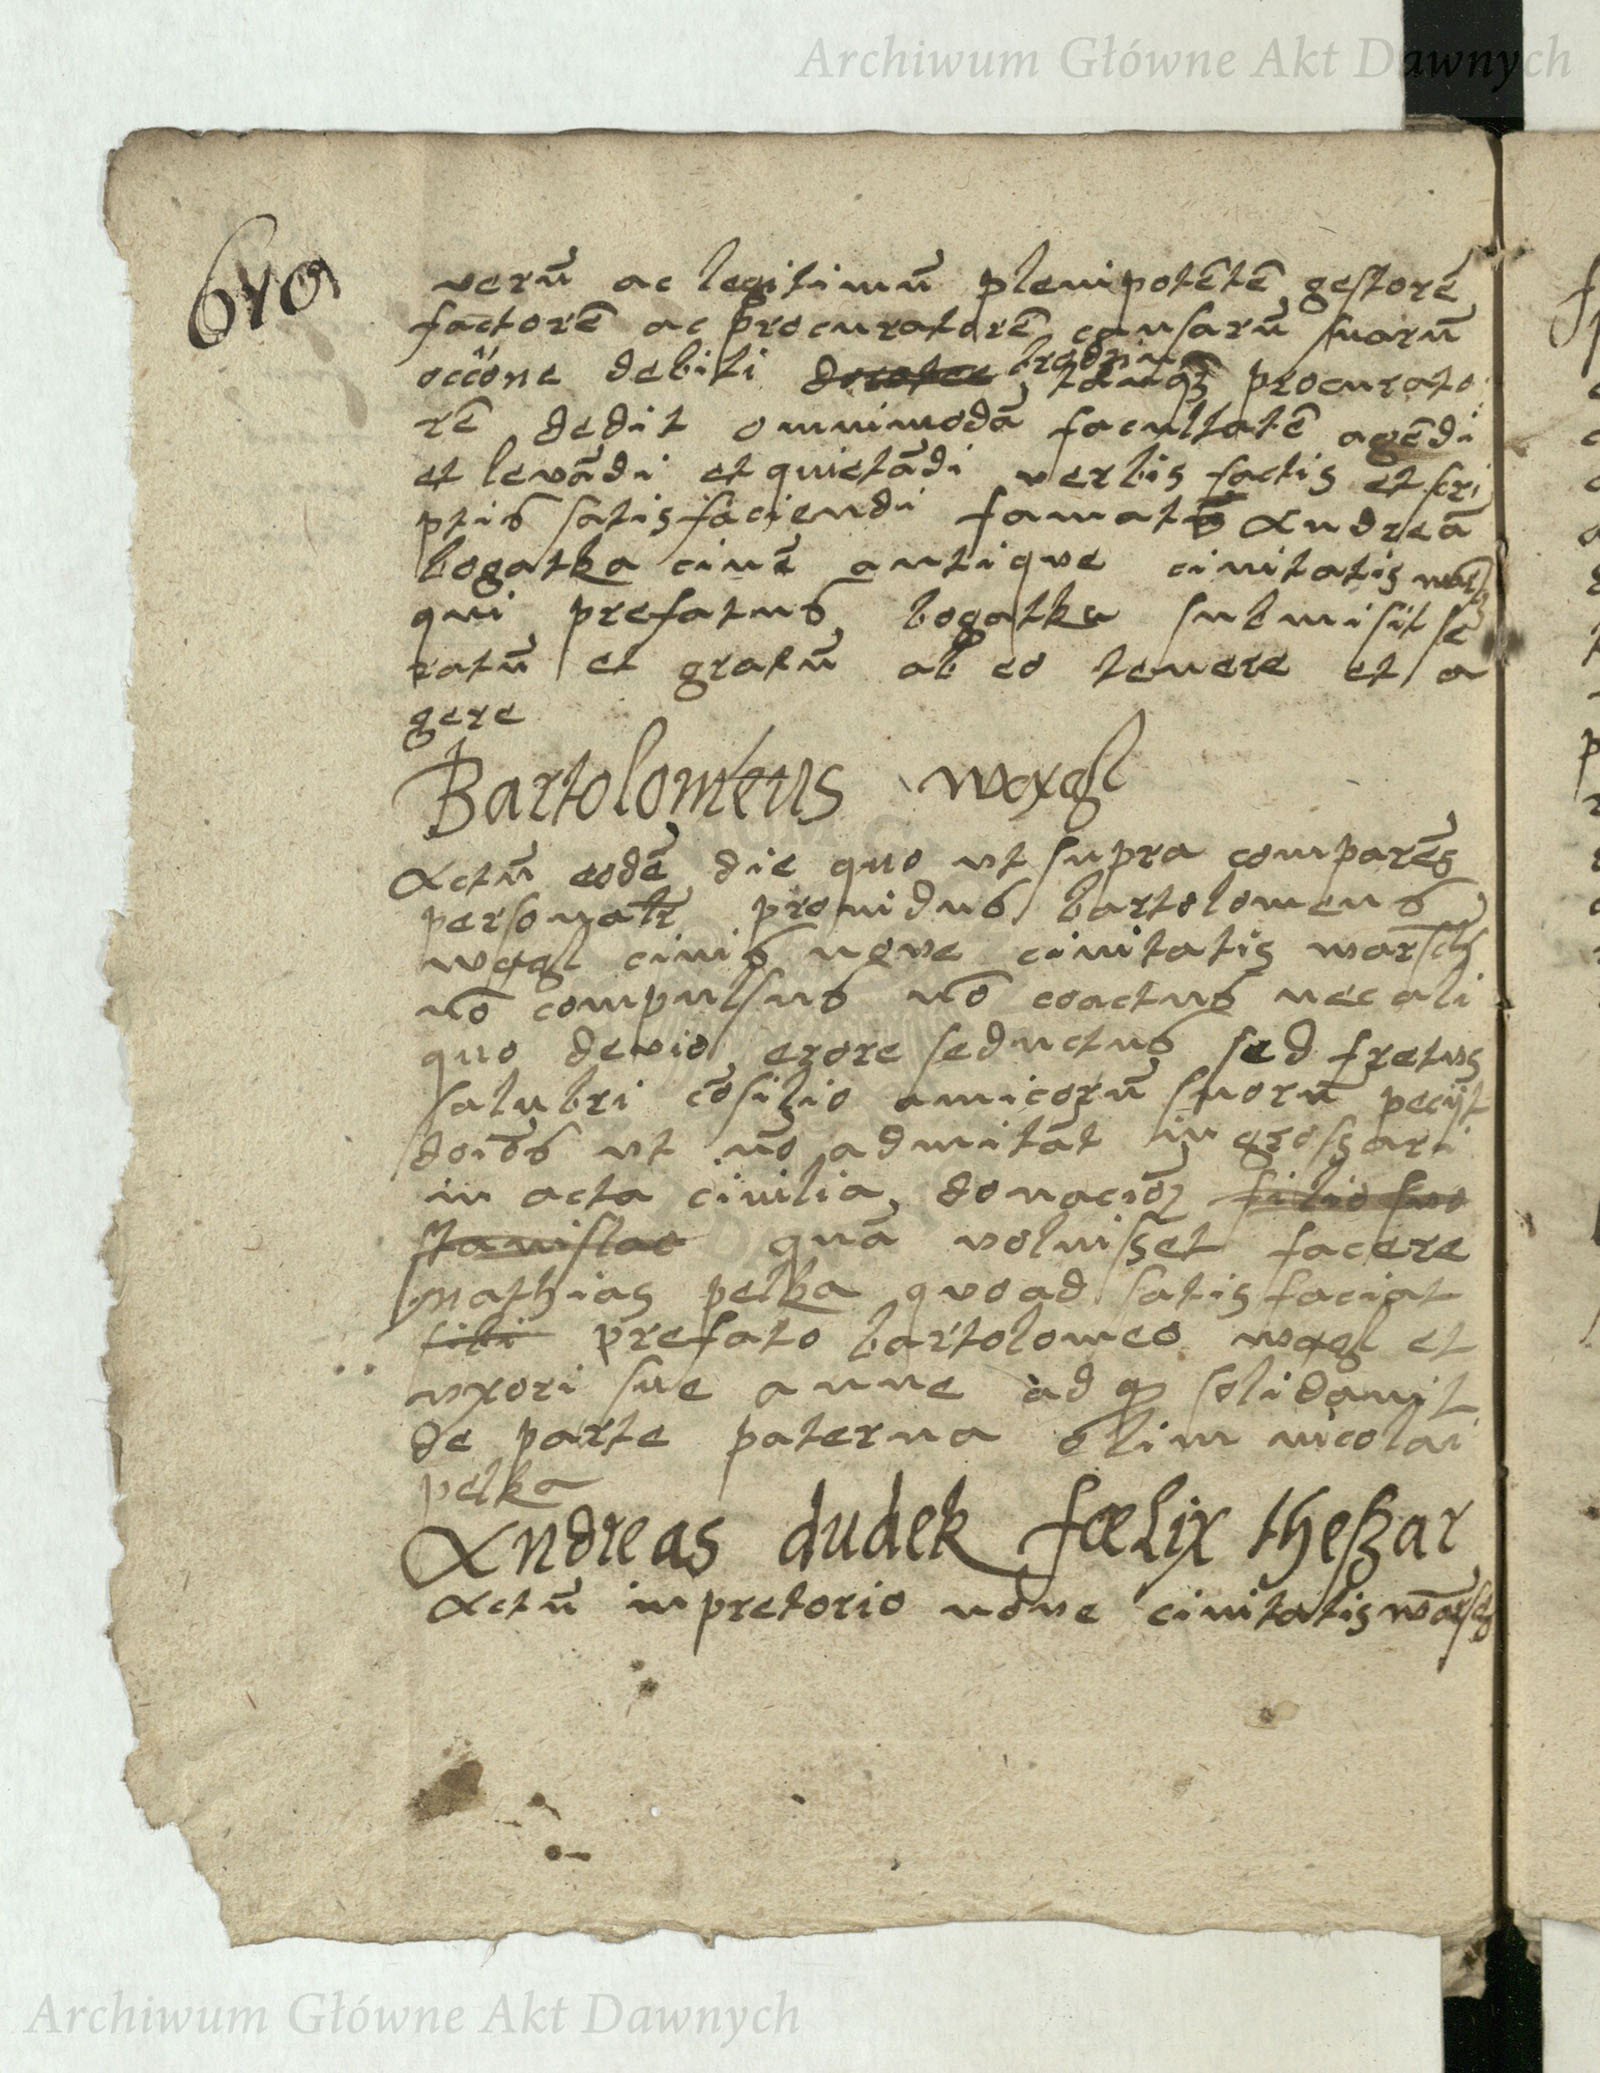 Archiwum Główne Akt Dawnych
verū ac legitimū plenipotētē gestorē
factorē ac procuratorē causarū suarū
occōne debiti tanq̄ procurato
rē dedit omnimodā facultatē agēdi
et levādi et quietādi verbis factis et scri
ptis satisfaciendi famatū Andreā
bogatka civē antique civitatis
qui prefatus bogatka submisit se
ratū et gratū ab eo tenere et a
gere
Bartolomeus wągl
Actū eodē die quo ut supra comparēs
personalr providus bartolomeus
wągl civis nove civitatis warsch
nō compulsus nō coactus nec ali
quo devio erore seductus sed fretus
salubri cōsilio amicorū suorū peciit
doiōs ut nō admitāt ingrossari
in acta civilia donacioē filio suo
stanislao quā voluisset facere
mathias pelka quoad satisfaciat
sibi prefato bartolomeo wągl et
uxori sue anne ad q solidavit
de parte paterna olim nicolai
pelka
Andreas dudek fœlix theszar
Actū in pretorio nove civitatis warsch
Archiwum Główne Akt Dawnych